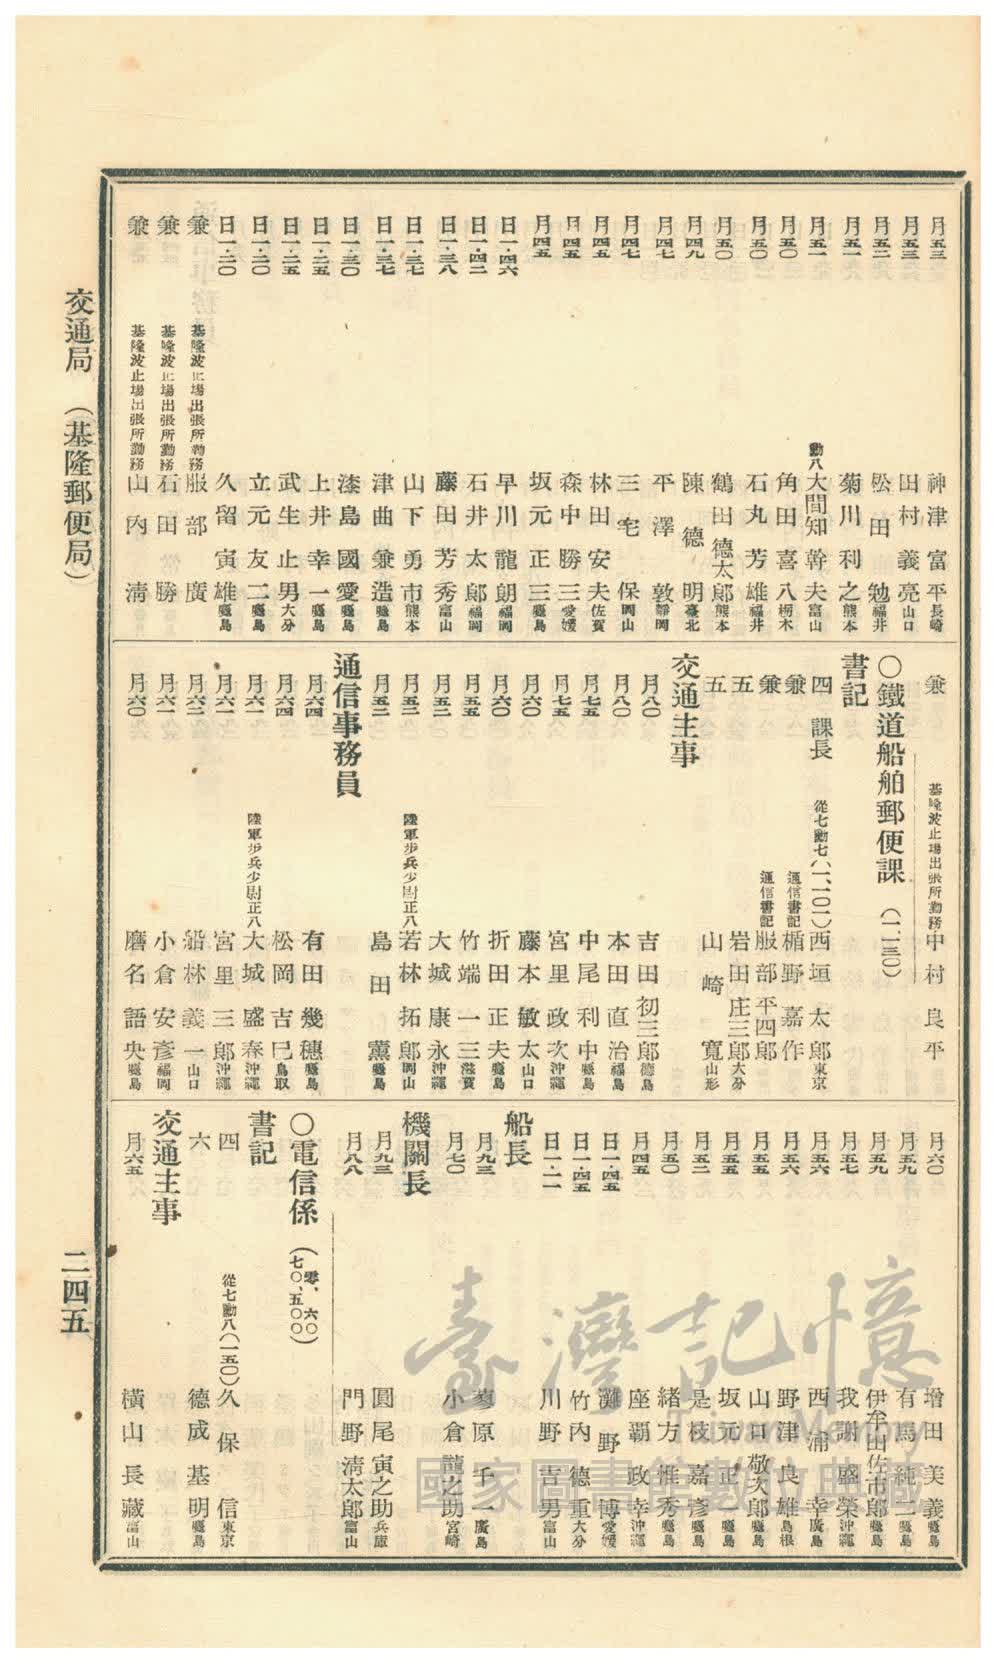 月五三 神津富平 長崎
月五三 田村義亮 山口
月五二 松田勉 福井
月五一 菊川利之 熊本
月五一 勳八 大間知幹夫 富山
月五〇 角田喜八 栃木
月五〇 石丸芳雄 福井
月五〇 鶴田德太郎 熊本
月四九 陳德明 臺北
月四七 平澤敦 靜岡
月四七 三宅保 岡山
月四五 林田安夫 佐賀
月四五 森中勝三 愛媛
月四五 坂元正三 鹿島
日一・四六 早川龍朗 福岡
日一・四二 石井太郎 福岡
日一・三八 藤田芳秀 富山
日一・三七 山下勇市 熊本
日一・三七 津曲兼造 鹿島
日一・三〇 漆島國愛 鹿島
日一・二五 上井幸一 鹿島
日一・二五 武生止男 大分
日一・二〇 立元友二 鹿島
日一・二〇 久留寅雄 鹿島
兼 基隆波止場出張所勤務 服部廣
兼 基隆波止場出張所勤務 石田勝
兼 基隆波止場出張所勤務 山內淸
兼 基隆波止場出張所勤務 中村良平
〇鐵道船舶郵便課（一、一三〇）
書記
四 課長 從七勳七（一、一〇一） 西垣太郎 東京
兼 遞信書記 楯野嘉作
兼 遞信書記 服部平四郎
五 岩田庄三郎 大分
五 山崎寬 山形
交通主事
月八〇 吉田初三郎 德島
月八〇 本田直治 福島
月七五 中尾利中 鹿島
月七五 宮里政次 沖繩
月六〇 藤本敏太 山口
月六〇 折田正夫 鹿島
月五五 竹端一三 滋賀
月五二 大城康永 沖繩
月五二 陸軍步兵少尉正八 若林拓郎 岡山
月五二 島田薰 鹿島
通信事務員
月六四 有田幾穗 鹿島
月六四 松岡吉巳 鳥取
月六一 陸軍步兵少尉正八 大城盛春 沖繩
月六二 宮里三郎 沖繩
月六二 船林義一 山口
月六一 小倉安彥 福岡
月六〇 磨名語央 鹿島
月六〇 增田美義 鹿島
月五九 有馬純二 鹿島
月五九 伊牟田佐市郎 鹿島
月五七 我謝盛榮 沖繩
月五六 西浦幸 廣島
月五六 野津良雄 島根
月五五 山口敬次郎 鹿島
月五五 坂元正一 鹿島
月五二 是枝嘉彥 鹿島
月五〇 緖方惟秀 鹿島
月四五 座覇政幸 沖繩
日一・四五 灘野博 愛媛
日一・四五 竹內德重 大分
日一・二一 川野吉男 富山
船長
月九三 蓼原千一 廣島
月七〇 小倉龍之助 宮崎
機關長
月九三 圓尾寅之助 兵庫
月八八 門野淸太郎 富山
〇電信係（零、六〇〇 七〇、五〇〇）
書記
四 從七勳八（一五〇） 久保信 東京
六 德成基明 鹿島
交通主事
月六五 橫山長藏 富山
交通局 （基隆郵便局）
二四五
臺灣記憶
Taiwan Memory
國家圖書館數位典藏